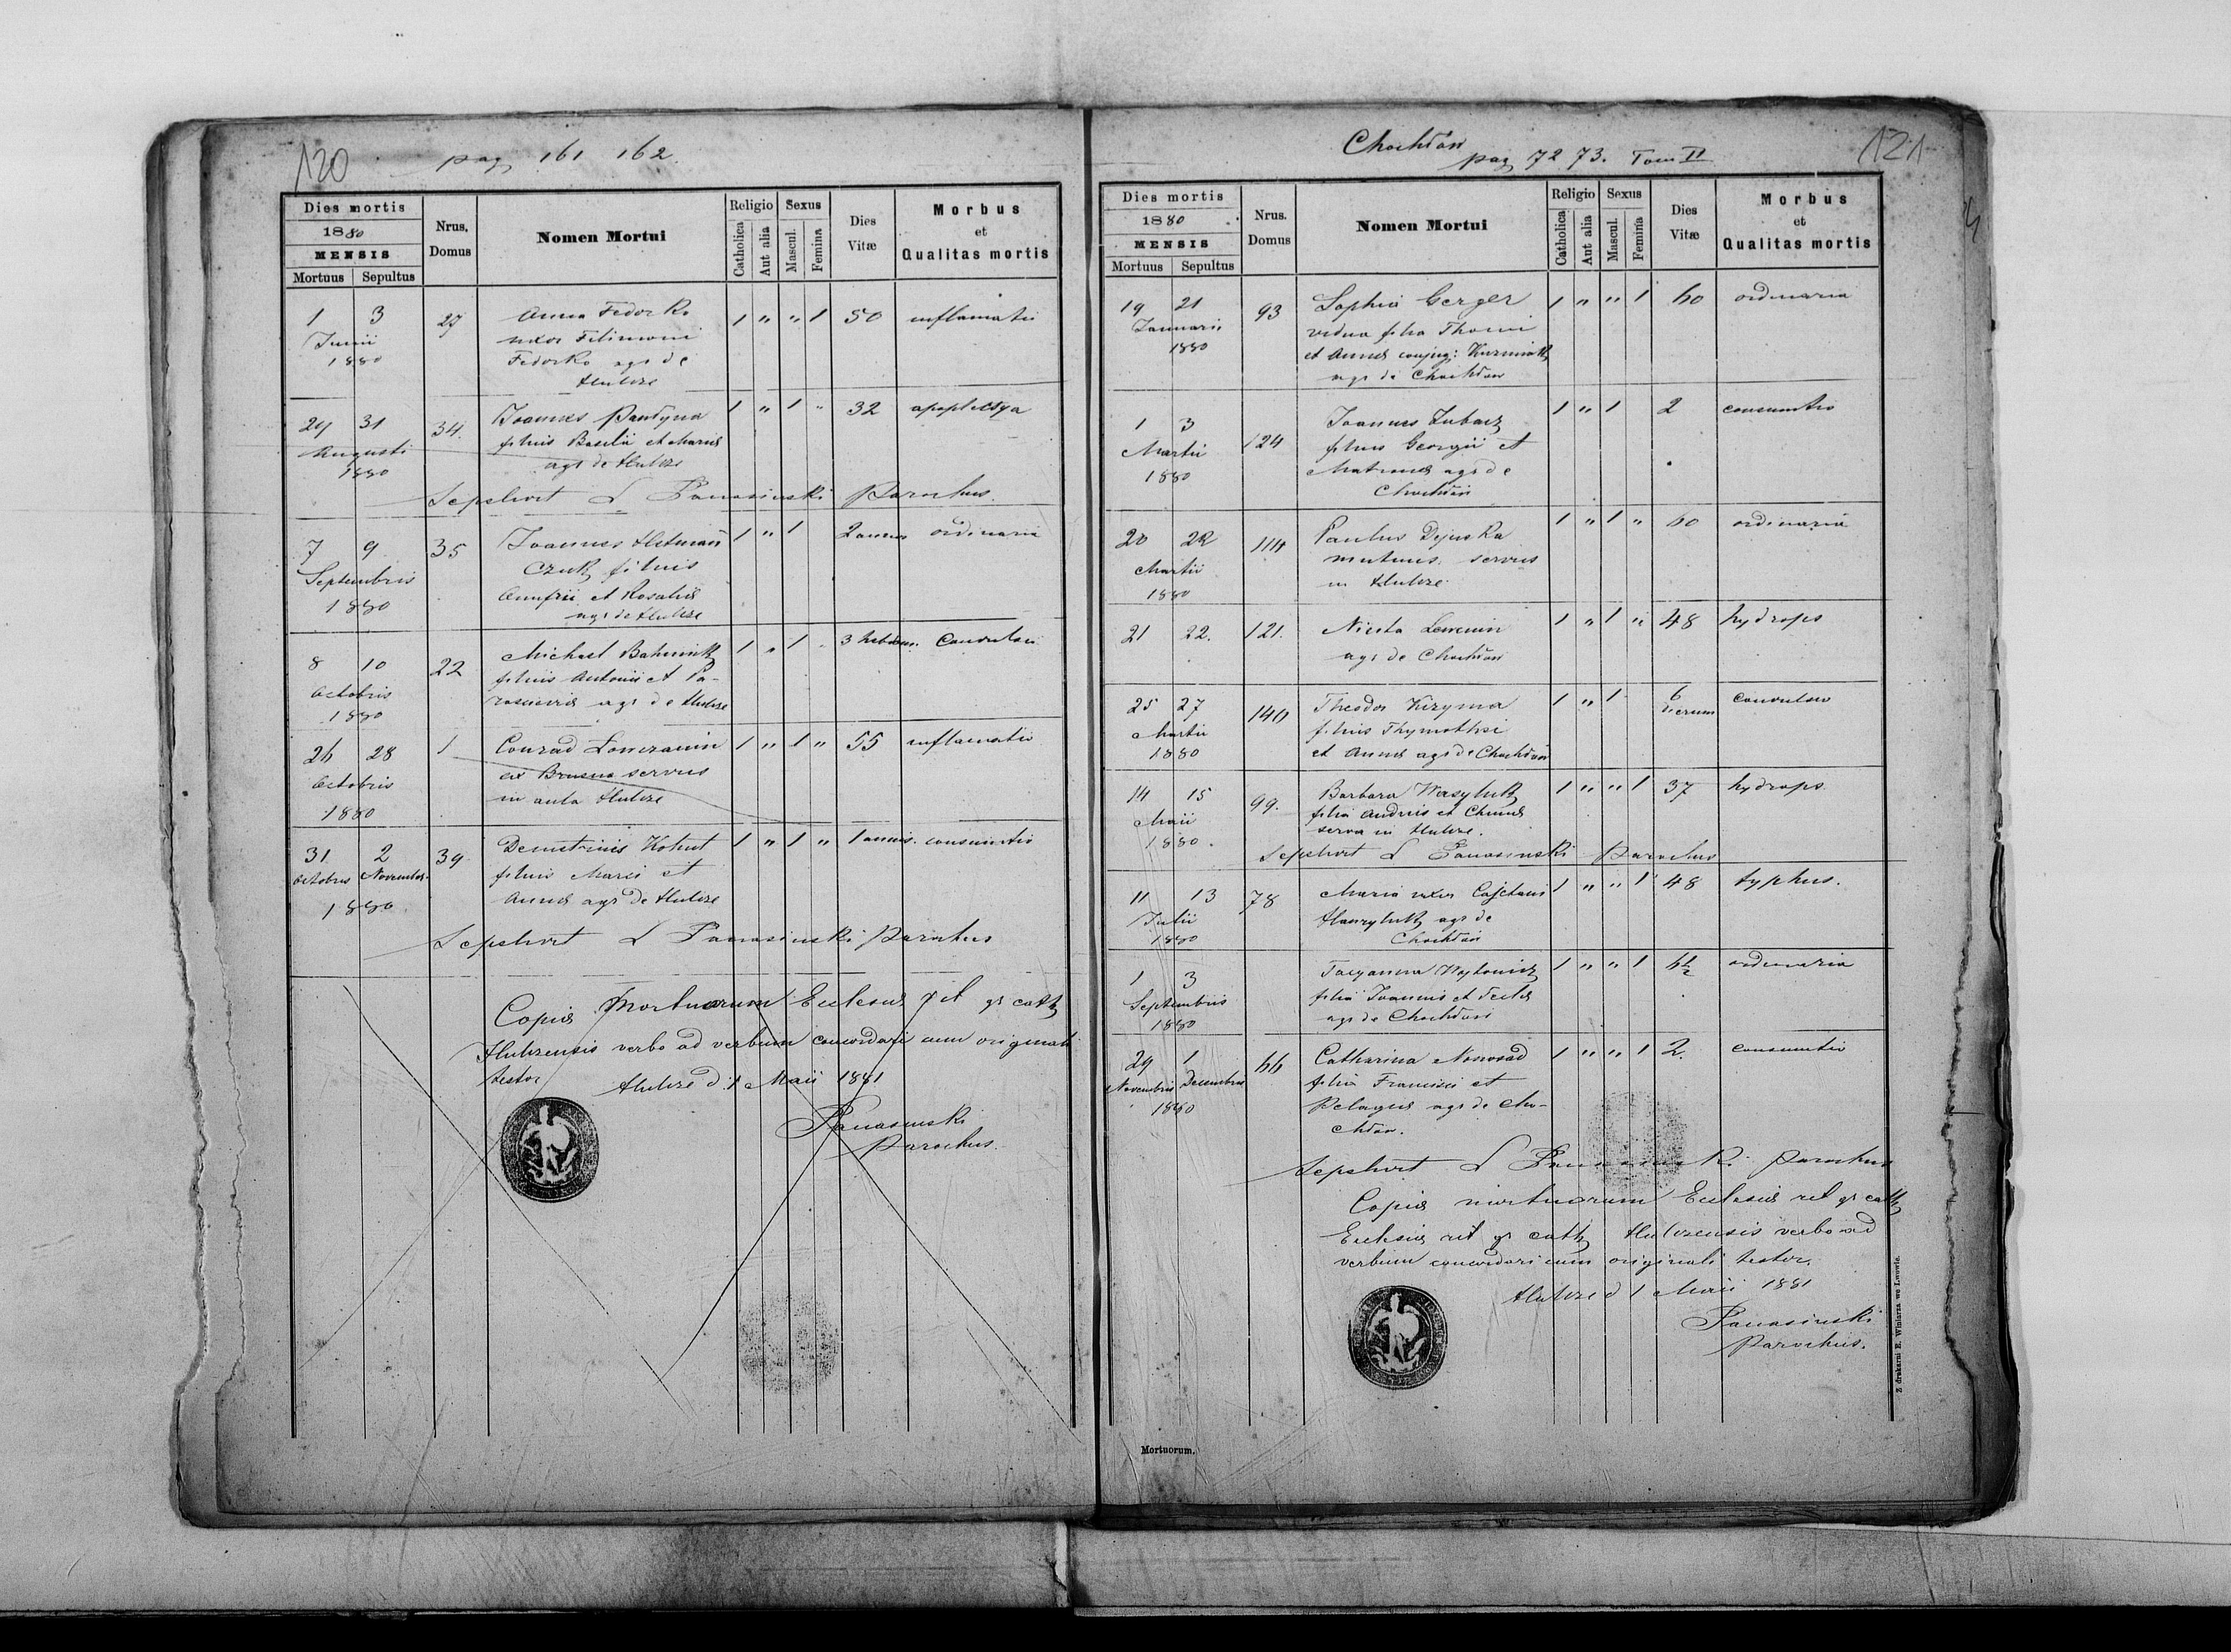 120
pag 161 162.
Dies mortis
1880
MENSIS
Mortuus Sepultus
Nrus. Domus
Nomen Mortui
Religio
Catholica
Aut alia
Sexus
Mascul.
Femina
Dies Vitæ
Morbus
et
Qualitas mortis
1 3 27 Anna Fedorko 1 " " 1 50 inflamatio
Junii uxor Filimoni
1880 Fedorko agr de
Hulcze
29 31 34. Joannes 1 " 1 " 32 apoplexya
Augusti filius Basilii et Mariæ
1880 agr de Hulcze
Sepelivit L Panasinski Parochus.
7 9 35 Joannes Hetman 1 " 1 2 annor ordinaria
Septembris czuk filius
1880 Onufrii et Rosaliæ
agr de Hulcze
8 10 22 Michael 1 " 1 " 3 hebdom. Convulsio
Octobris filius Antonii et Pa-
1880 rasceviæ agr de Hulcze
26 28 1 Conrad 1 " 1 " 55 inflamatio
Octobris ex Brusno servus
1880 in aula Hulcze
31 2 39 Demetrius Kohut 1 " 1 " 1 annis. consumtio
Octobris Novembr. filius Marci et
1880 Annæ agr de Hulcze
Sepelivit L Panasinski Parochus
Copia Mortuorum Ecclesiæ rit gr cath
Hulczensis verbo ad verbum concordari cum originali
testor Hulcze d. 1 Maii 1881
Panasinski
Parochus.
121
Chochłów
pag 72 73. Tom II
Dies mortis
1880
MENSIS
Mortuus Sepultus
Nrus. Domus
Nomen Mortui
Religio
Catholica
Aut alia
Sexus
Mascul.
Femina
Dies Vitæ
Morbus
et
Qualitas mortis
19 21 93 Sophia Gerger 1 " " 1 60 ordinaria
Januarii vidua filia Thomi
1880 et Annæ conjug: Kuzmiuk
agr de Chochłów
1 3 124 Joannes 1 " 1 2 consumtio
Martii filius Georgii et
1880 Matronæ agr de
Chochłów
20 22 114 Paulus Dejneka 1 " 1 " 60 ordinaria
Martii mutuus servus
1880 in Hulcze
21 22. 121. Nicota 1 " 1 " 48 hydrops
agr de Chochłów
25 27 140 Theodor Kuzyma 1 " 1 6 dierum convulsio
Martii filius Thymothei
1880 et Annæ agr de Chochłów
14 15 99. Barbara Wasyluk 1 " " 1 37 hydrops
Maii filia Andreis et
1880. serva in Hulcze.
Sepelivit L Panasinski Parochus
11 13 78 Maria uxor Cajetani 1 " " 1 48 typhus.
Julii Hawryluk agr de
1880 Chochłów
1 3 Tacyanna Woytowicz 1 " " 1 ordinaria
Septembris filia Joannis et
1880 agr de Chochłów
29 1 66 Catharina Nowosad 1 " " 1 2. consumtio
Novembris Decembris filia Francisci et
1880 Pelagiæ agr de Cho-
chłów.
Sepelivit L Panasinski Parochus
Copia mortuorum Ecclesiæ rit gr cath
Ecclesiæ rit gr cath Hulczensis verbo ad
verbum concordari cum originali testor.
Hulcze d 1 Maii 1881
Panasinski
Parochus.
Mortuorum.
Z drukarni E. Winiarza we Lwowie.